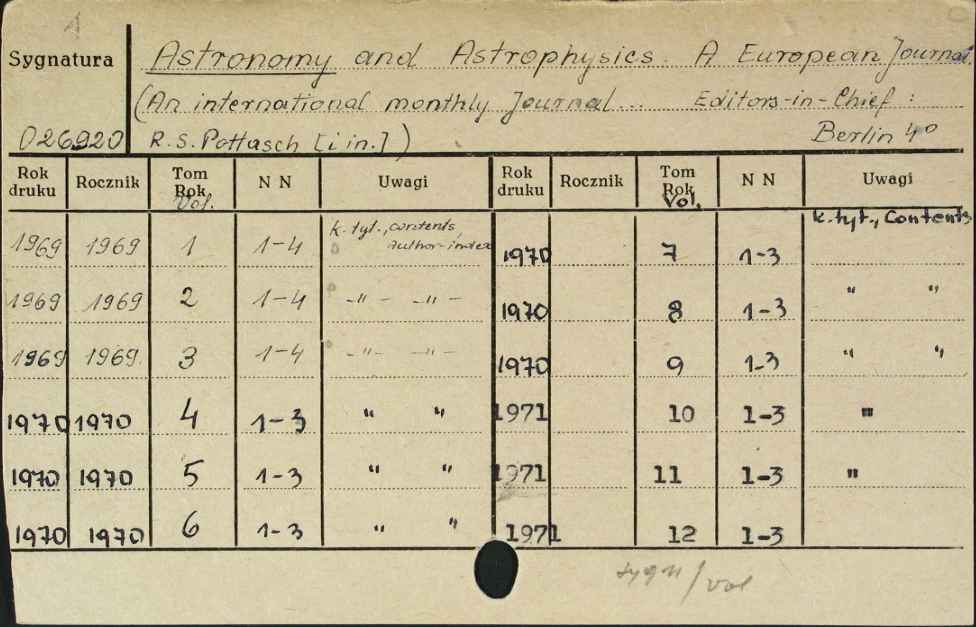 1
Sygnatura
Astronomy and Astrophysics. A European Journal.
(An international monthly Journal... Editors-in-Chief:
026920 R.S. Pottasch [i in.]) Berlin 4°
Rok druku Rocznik Tom Rok. Vol. N N Uwagi Rok druku Rocznik Tom Rok Vol. N N Uwagi
1969 1969 1 1-4 k. tyt., contents, author-index 1970 7 1-3 k. tyt., Contents
1969 1969 2 1-4 -"- -"- 1970 8 1-3 " "
1969 1969 3 1-4 -"- -"- 1970 9 1-3 " "
1970 1970 4 1-3 " " 1971 10 1-3 "
1970 1970 5 1-3 " " 1971 11 1-3 "
1970 1970 6 1-3 " " 1971 12 1-3
sygn/vol